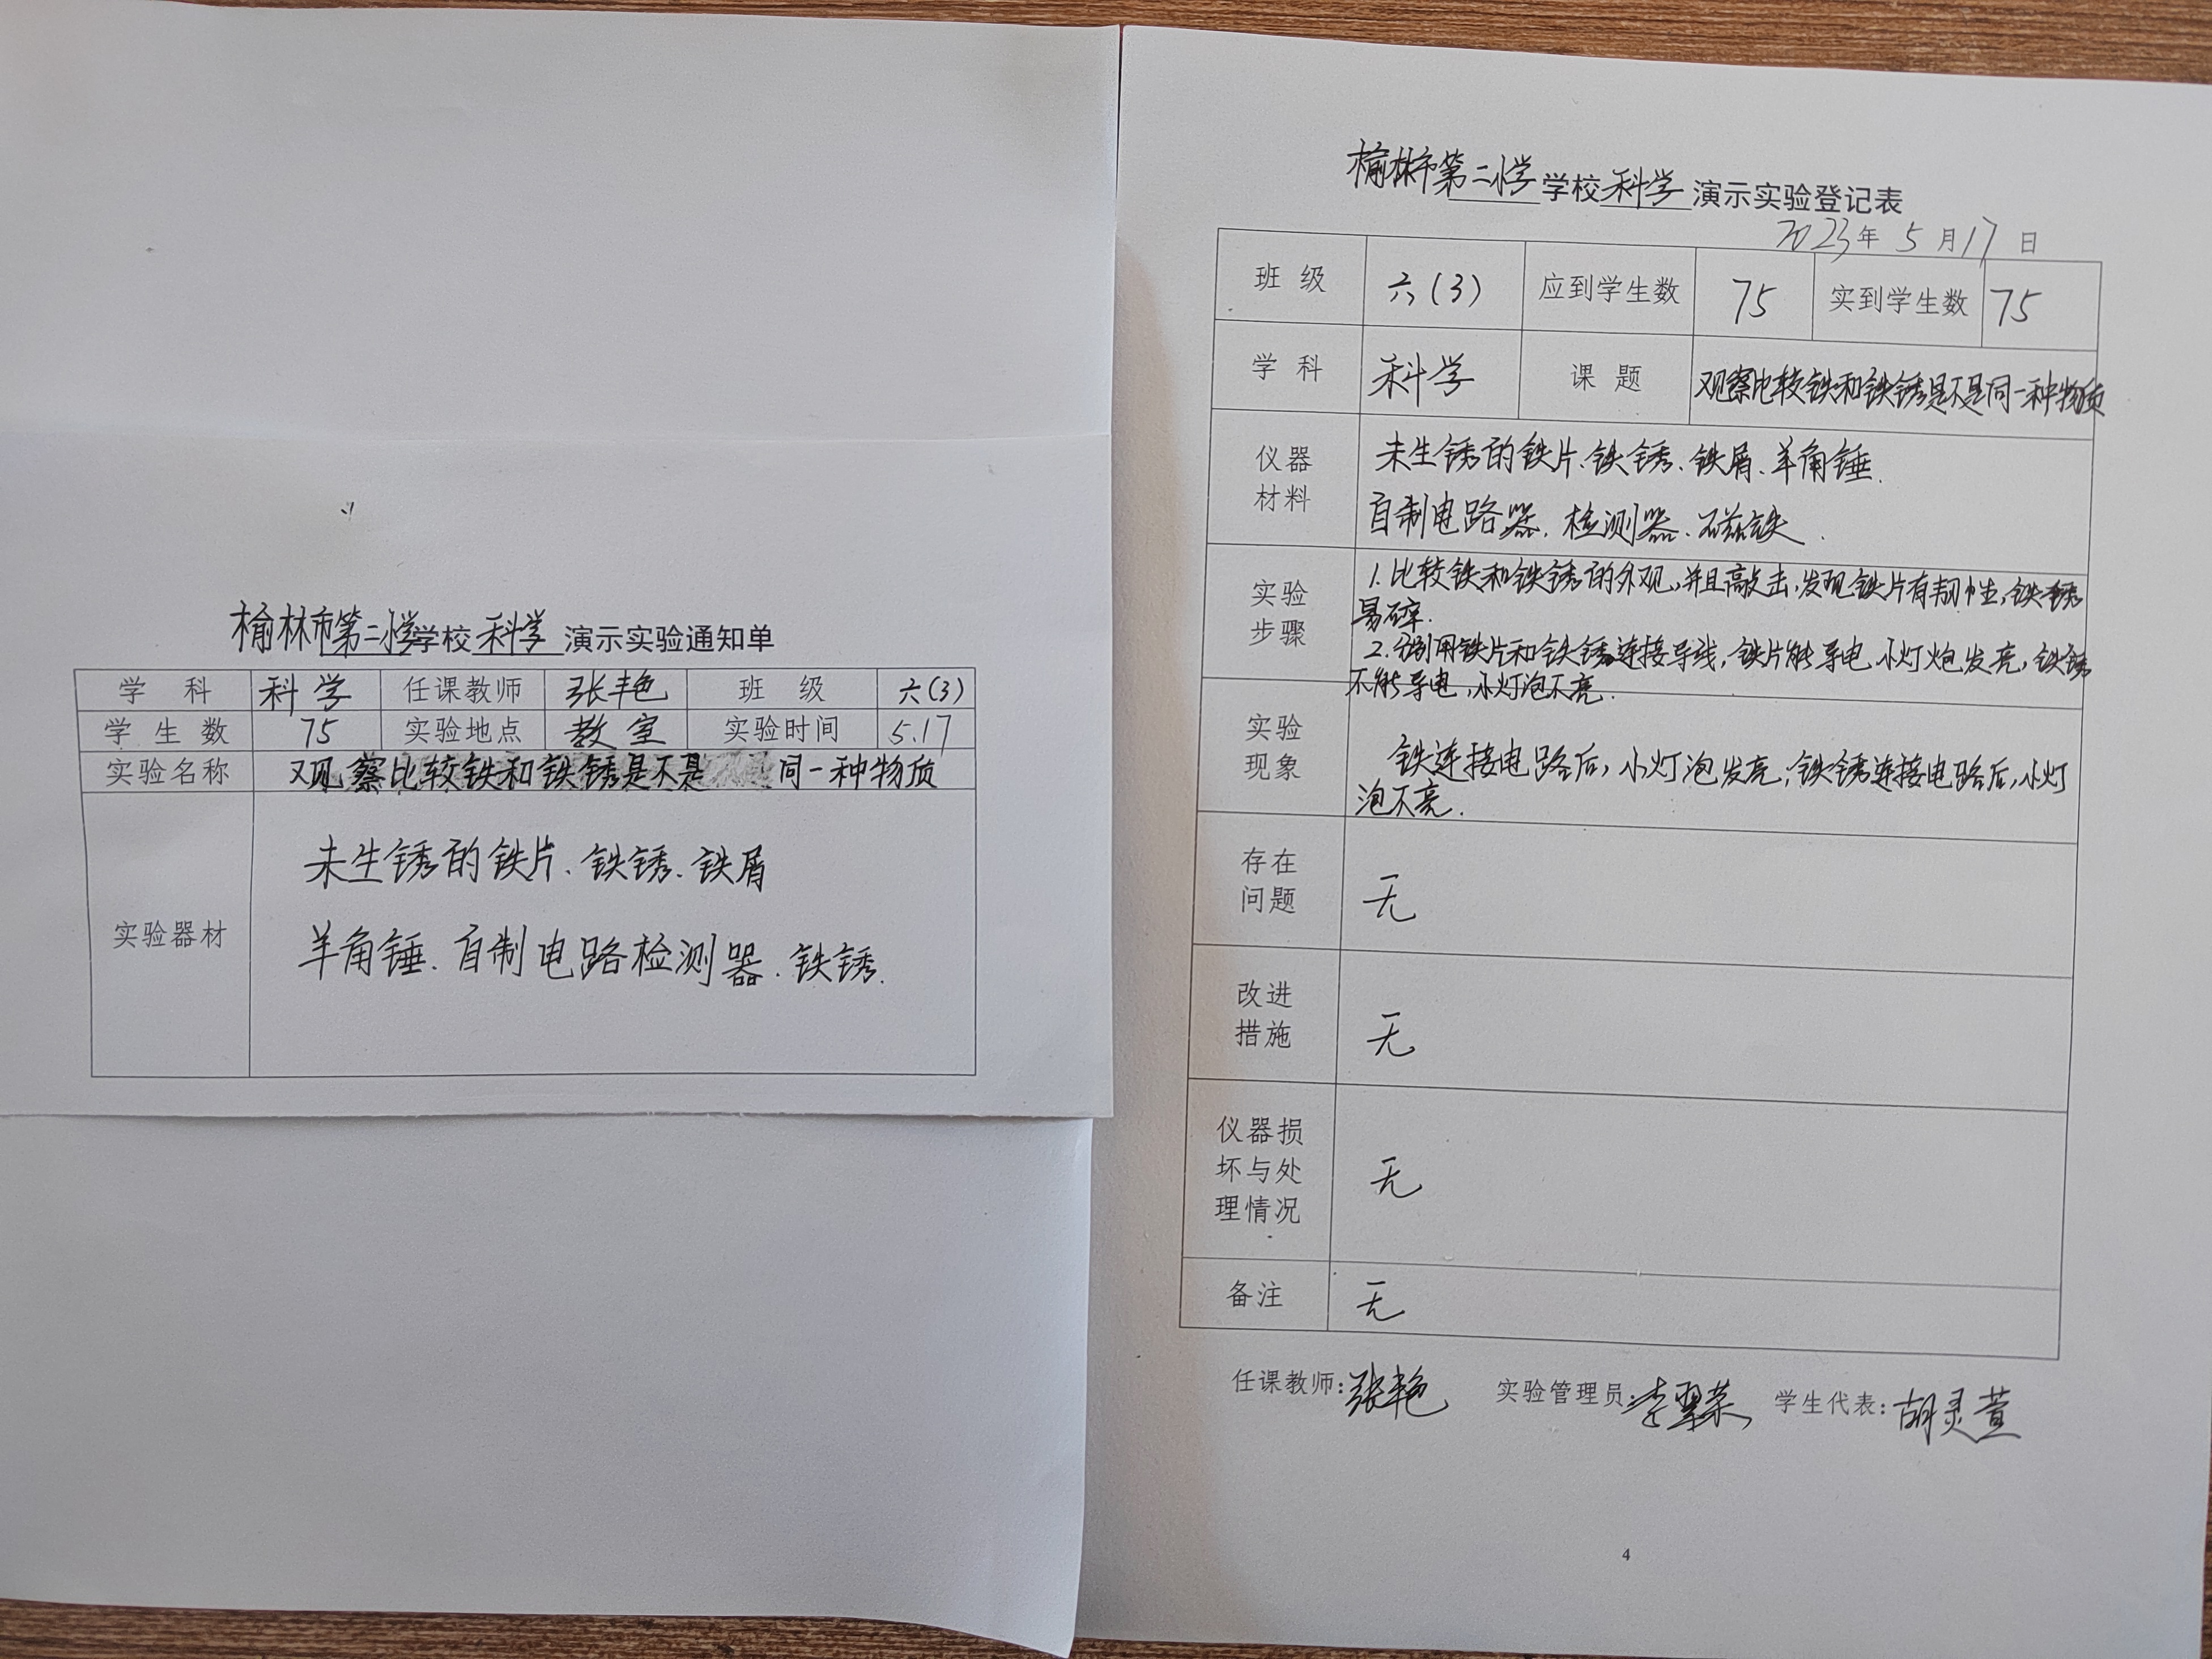 榆林市第二小学学校科学演示实验通知单
学 科 科学 任课教师 张艳 班 级 六(3)
学 生 数 75 实验地点 教室 实验时间 5.17
实验名称 观察比较铁和铁锈是不是同一种物质
未生锈的铁片、铁锈、铁屑
实验器材
羊角锤、自制电路检测器、铁锈.
榆林市第二小学学校科学演示实验登记表
2023年 5 月17 日
班 级 六(3) 应到学生数 75 实到学生数 75
学 科 科学 课 题 观察比较铁和铁锈是不是同一种物质
仪器
材料
未生锈的铁片、铁锈、铁屑、羊角锤.
自制电路器、检测器、磁铁.
实验
步骤
1.比较铁和铁锈的外观,并且敲击,发现铁片有韧性,铁锈
易碎.
2.分别用铁片和铁锈连接导线,铁片能导电小灯炮发亮,铁锈
不能导电,小灯泡不亮.
实验
现象
铁连接电路后,小灯泡发亮;铁锈连接电路后,小灯
泡不亮.
存在
问题
无
改进
措施
无
仪器损
坏与处
理情况
无
备注 无
任课教师:张艳 实验管理员: 学生代表:胡灵萱
4